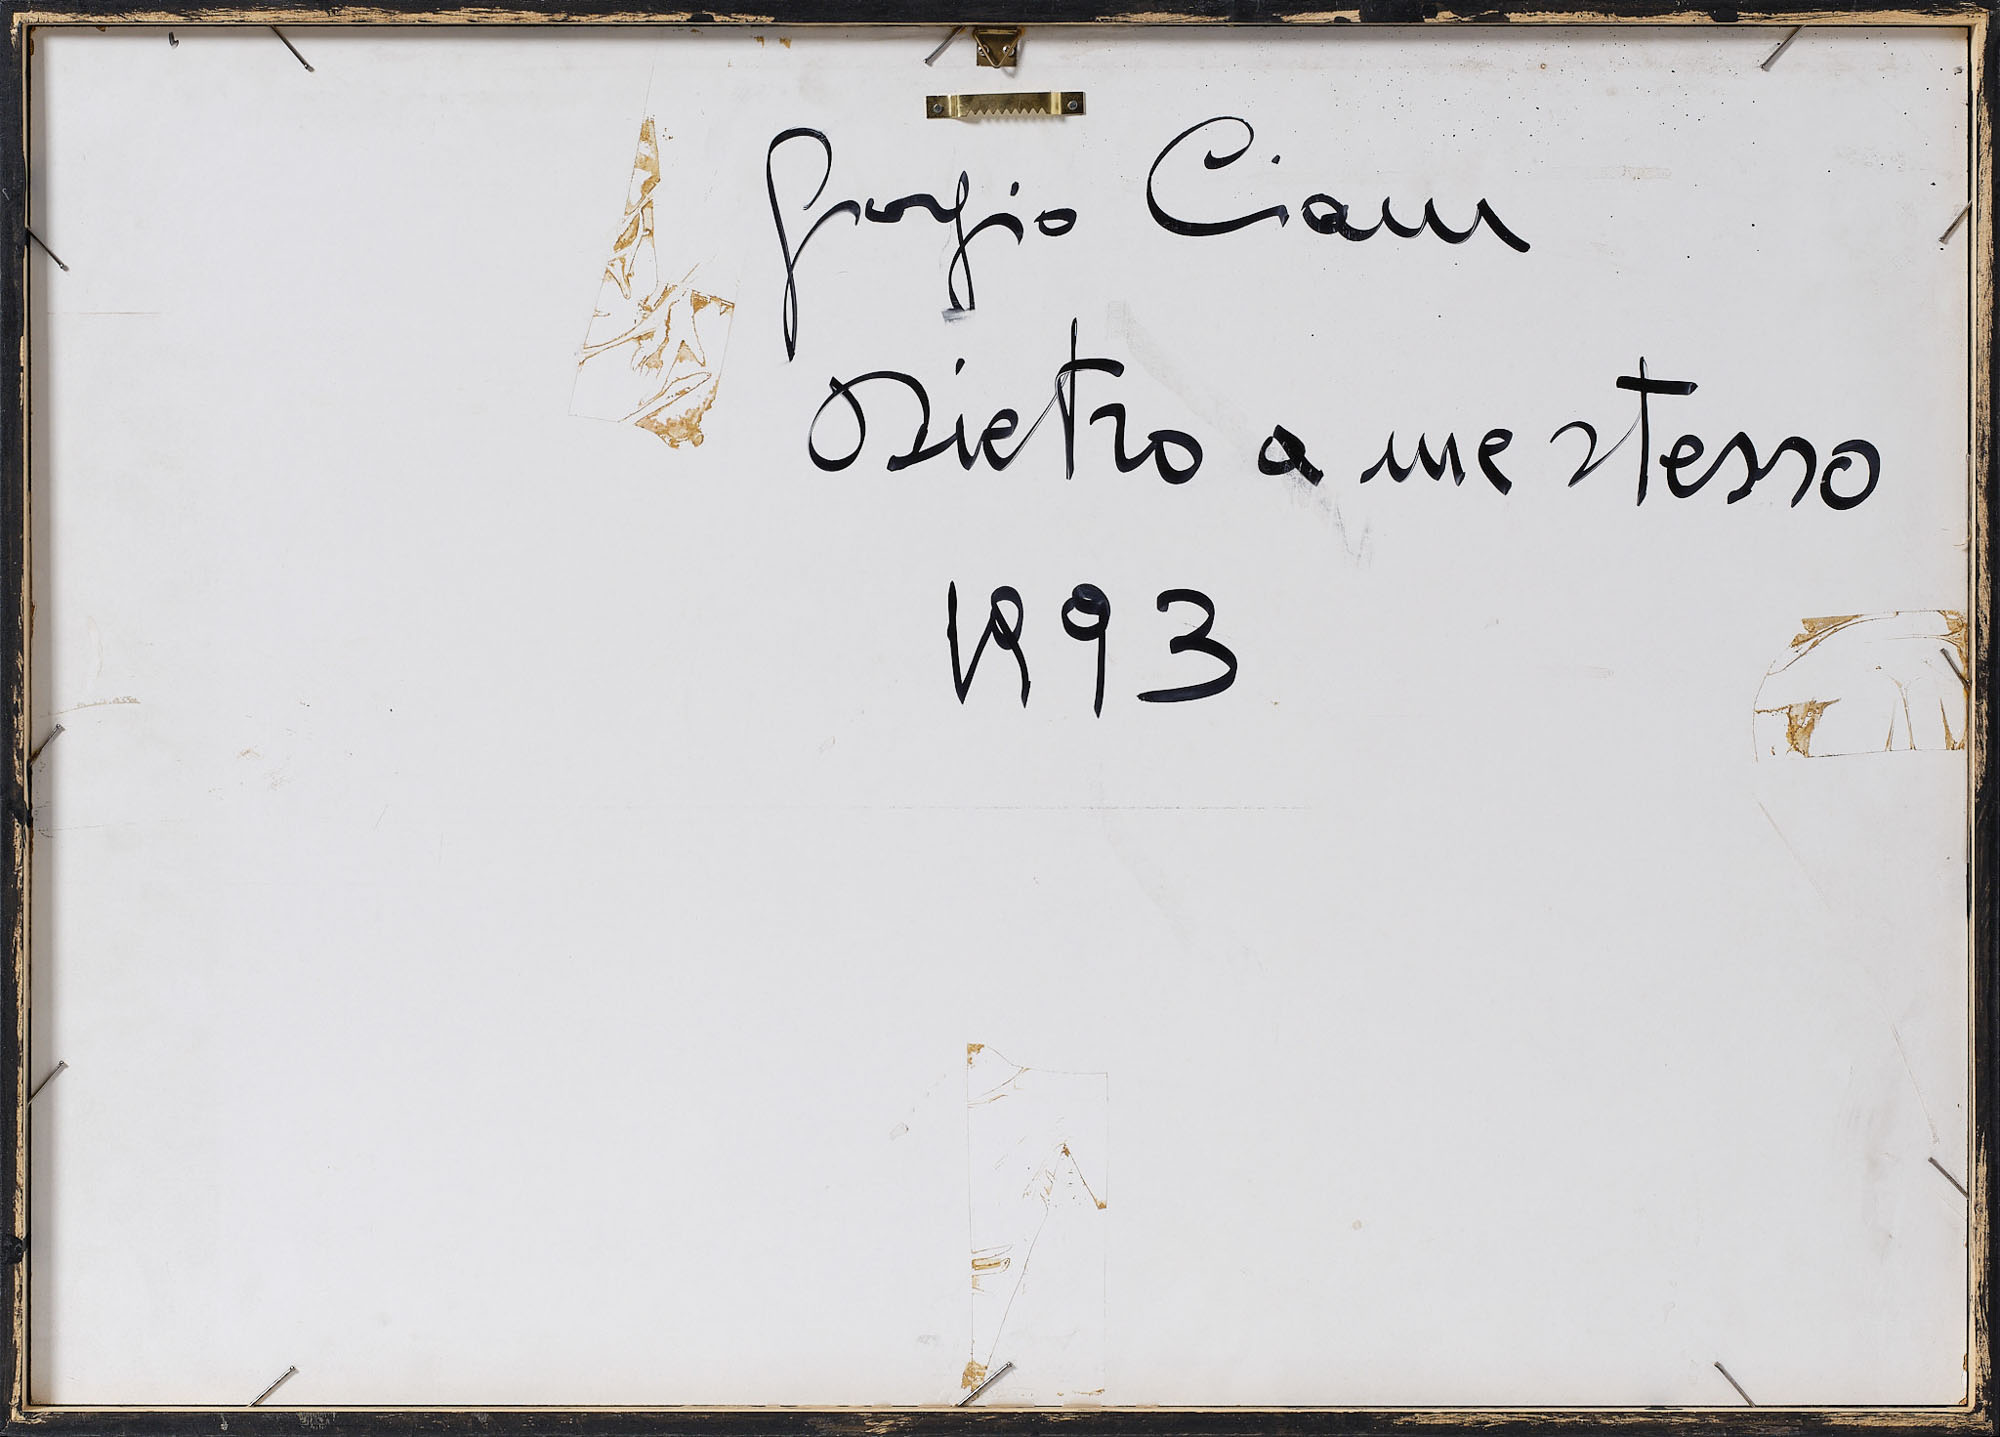 Giorgio Ciam
Dietro a me stesso
1993